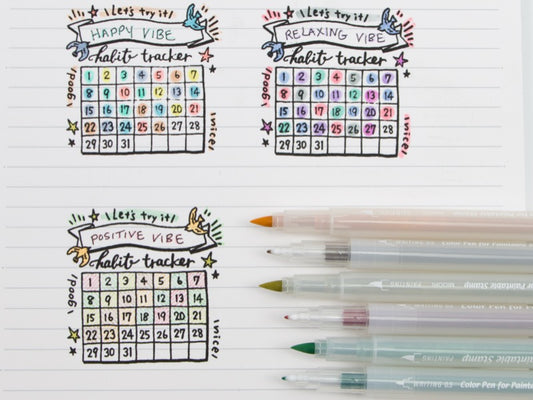 Let's try it!
HAPPY VIBE
habit tracker
good!
1 2 3 4 5 6 7
8 9 10 11 12 13 14
15 16 17 18 19 20 21
22 23 24 25 26 27 28
29 30 31
nice!
Let's try it!
RELAXING VIBE
habit tracker
good!
1 2 3 4 5 6 7
8 9 10 11 12 13 14
15 16 17 18 19 20 21
22 23 24 25 26 27 28
29 30 31
nice!
Let's try it!
POSITIVE VIBE
habit tracker
good!
1 2 3 4 5 6 7
8 9 10 11 12 13 14
15 16 17 18 19 20 21
22 23 24 25 26 27 28
29 30 31
nice!
WRITING 03 Color Pen for Painta
PAINTING
WRITING 03 Color Pen for
PAINTING Paintable Stamp
WRITING 03 Color Pen for Paint